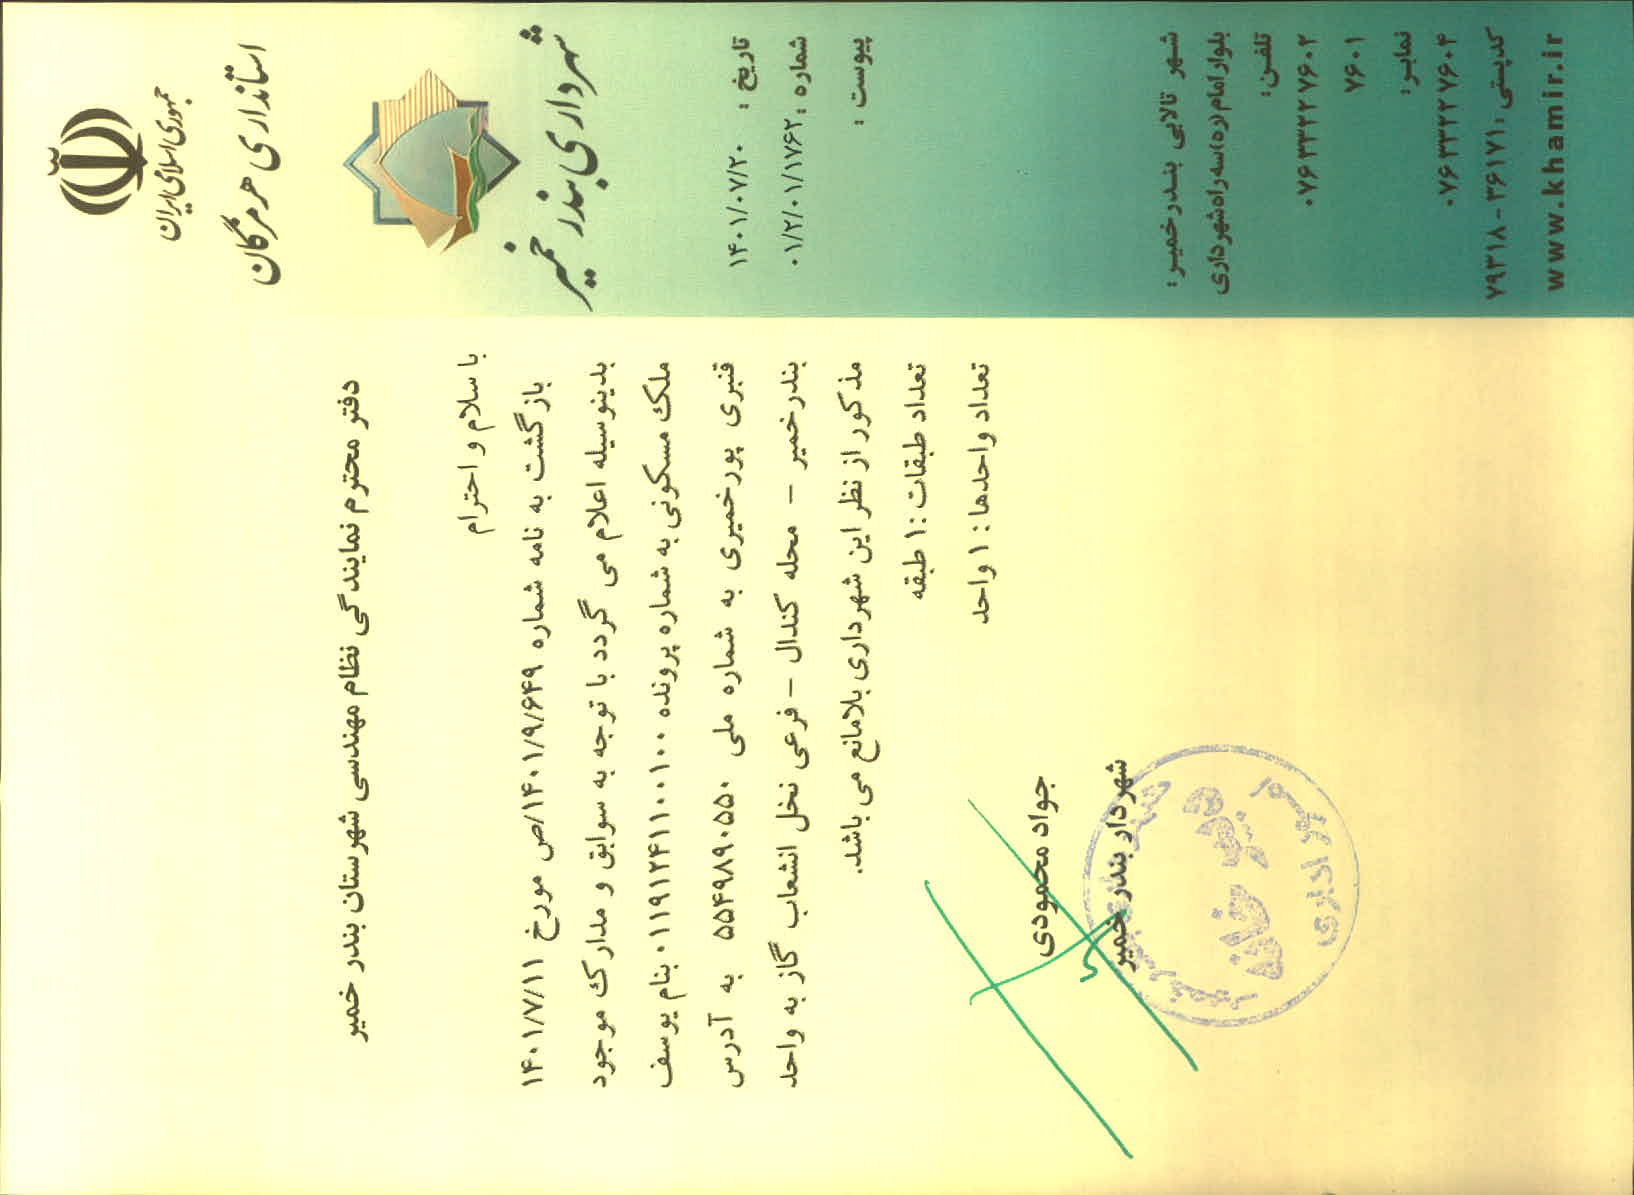 جمهوری اسلامی ایران
استانداری هرمزگان
شهرداری بندر خمیر
تاریخ : ۱۴۰۱/۰۷/۲۰
شماره : ۰۱/۲/۰۱/۱۷۶۲
پیوست :
دفتر محترم نمایندگی نظام مهندسی شهرستان بندر خمیر
با سلام و احترام
بازگشت به نامه شماره ۱۴۰۱/۹/۶۴۹/ص مورخ ۱۴۰۱/۷/۱۱
بدینوسیله اعلام می گردد با توجه به سوابق و مدارک موجود
ملک مسکونی به شماره پرونده ۰۱۱۹۱۲۴۱۱۰۰۱۰۰ بنام یوسف
قنبری پورخمیری به شماره ملی ۵۵۴۹۸۹۰۵۵۰ به آدرس
بندرخمیر - محله کندال - فرعی نخل انشعاب گاز به واحد
مذکور از نظر این شهرداری بلامانع می باشد.
تعداد طبقات :۱ طبقه
تعداد واحدها : ۱ واحد
جواد محمودی
شهردار بندرخمیر
دبیرخانه
امور اداری
شهر تالابی بندرخمیر:
بلوار امام(ره)سه راه شهرداری
تلفن:
۰۷۶۳۳۲۲۷۶۰۲
۷۶۰۱
نمابر:
۰۷۶۳۳۲۲۷۶۰۴
کدپستی : ۳۶۱۷۱-۷۹۳۱۸
www.khamir.ir